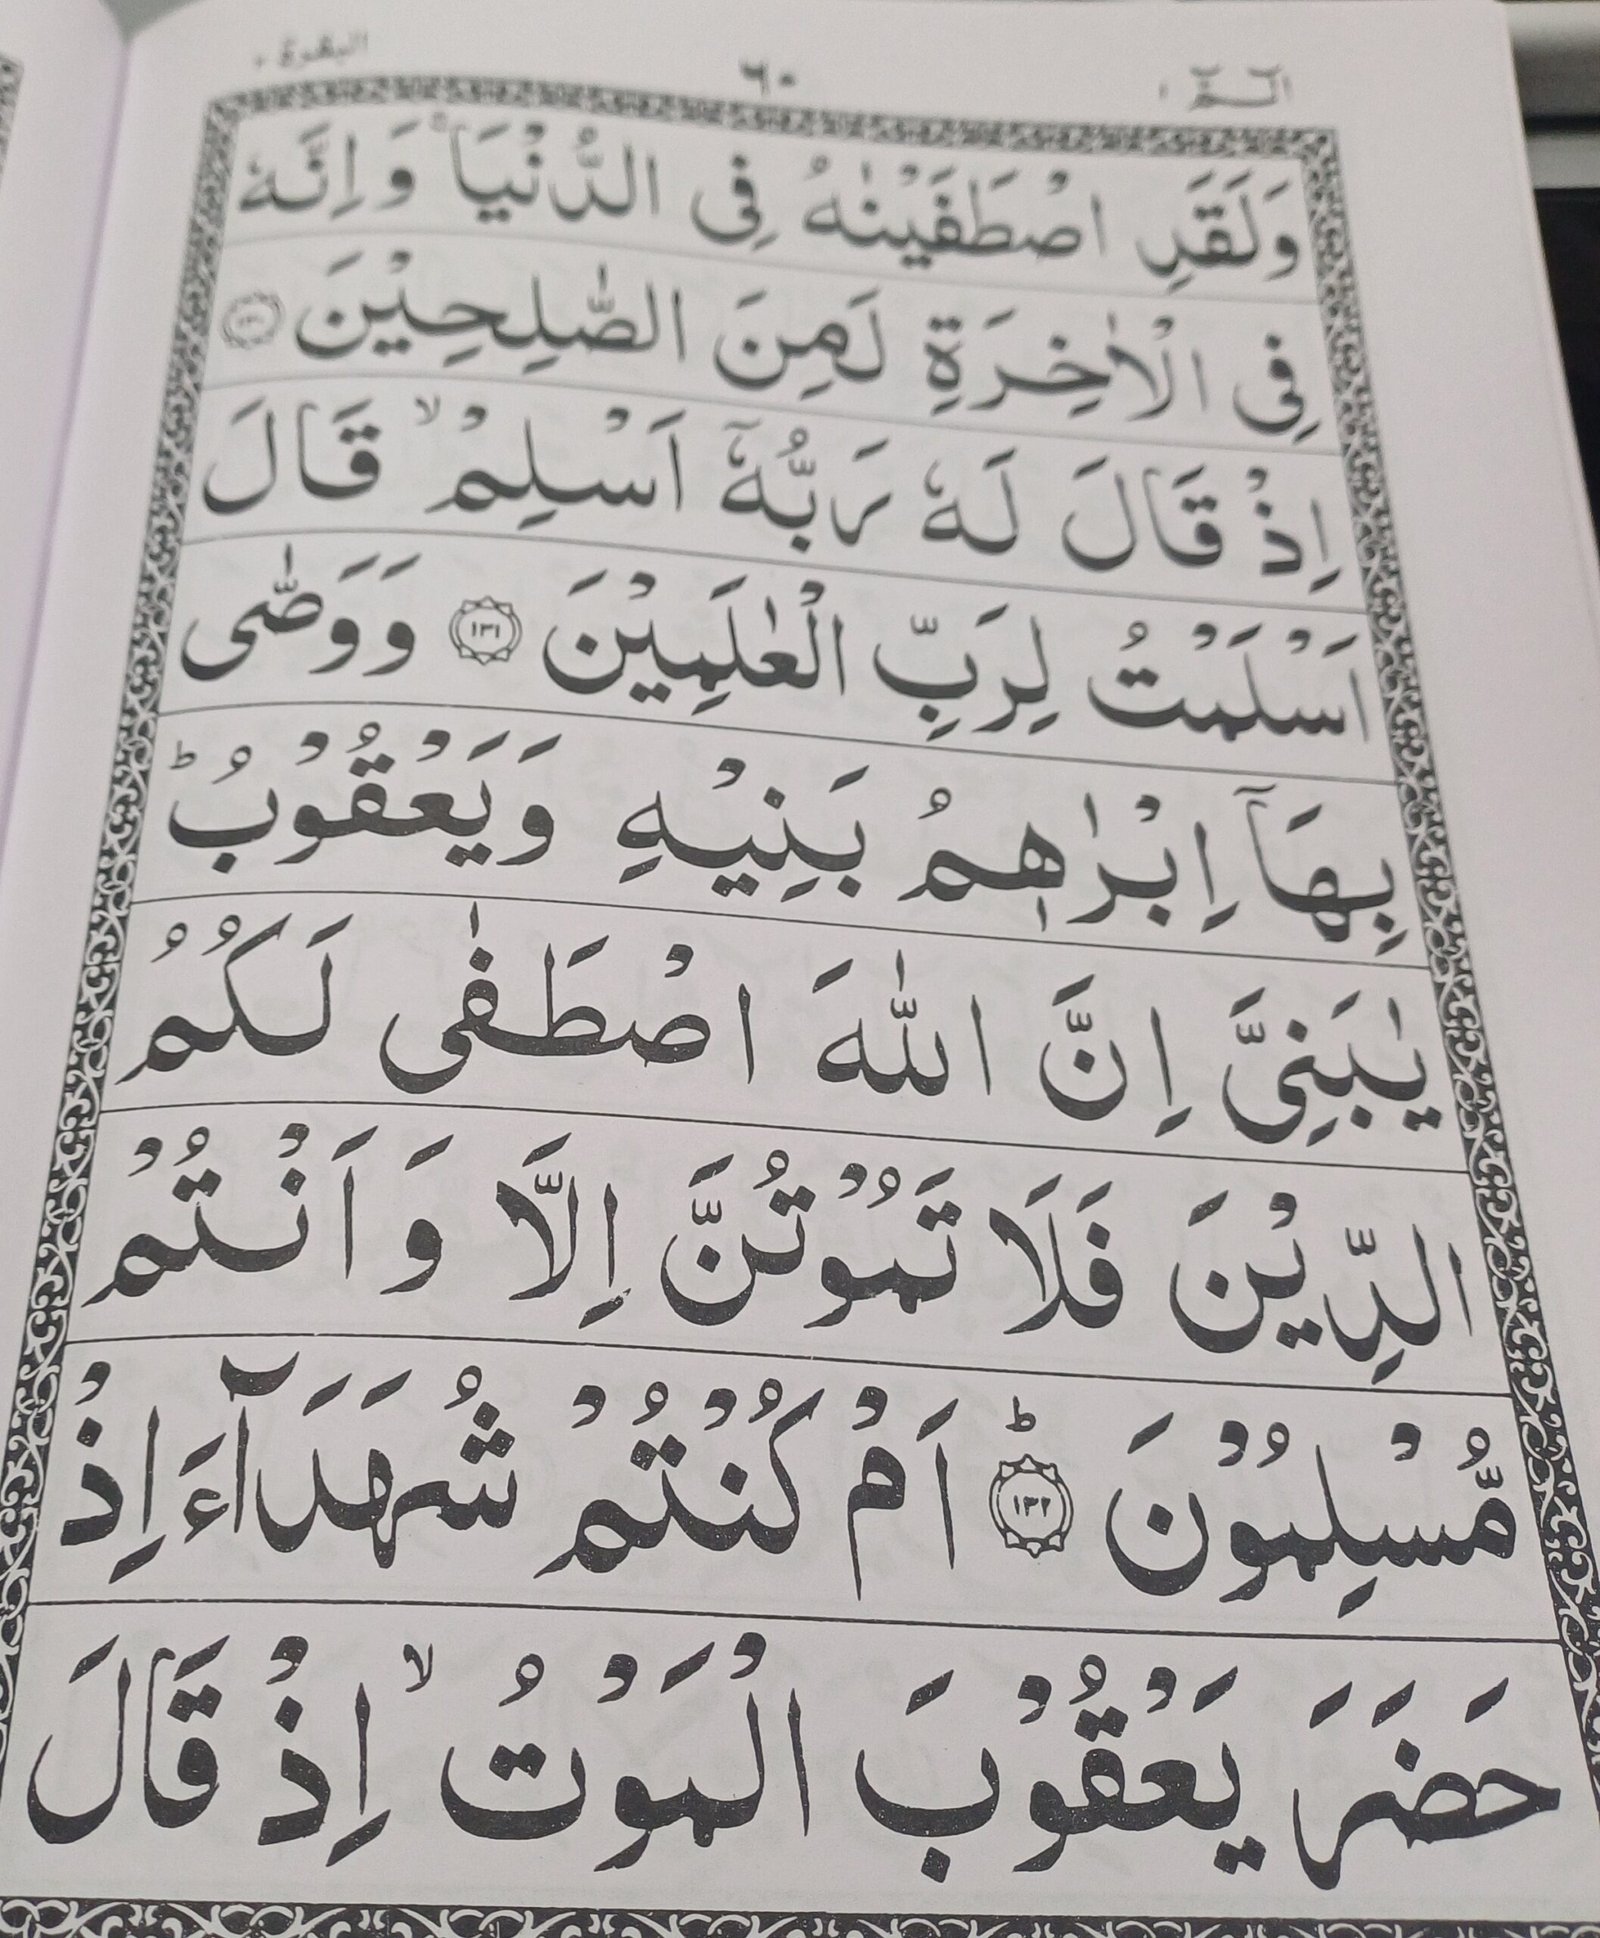 الٓمّٓ ١ ٦٠ البقرة ٢
وَلَقَدِ اصْطَفَيْنٰهُ فِى الدُّنْيَا ۚ وَاِنَّهٗ
فِى الْاٰخِرَةِ لَمِنَ الصّٰلِحِيْنَ ﴿١٣٠﴾
اِذْ قَالَ لَهٗ رَبُّهٗۤ اَسْلِمْ ۙ قَالَ
اَسْلَمْتُ لِرَبِّ الْعٰلَمِيْنَ ﴿١٣١﴾ وَوَصّٰى
بِهَاۤ اِبْرٰهٖمُ بَنِيْهِ وَيَعْقُوْبُ ؕ
يٰبَنِىَّ اِنَّ اللّٰهَ اصْطَفٰى لَكُمُ
الدِّيْنَ فَلَا تَمُوْتُنَّ اِلَّا وَاَنْتُمْ
مُّسْلِمُوْنَ ؕ ﴿١٣٢﴾ اَمْ كُنْتُمْ شُهَدَآءَ اِذْ
حَضَرَ يَعْقُوْبَ الْمَوْتُ ۙ اِذْ قَالَ